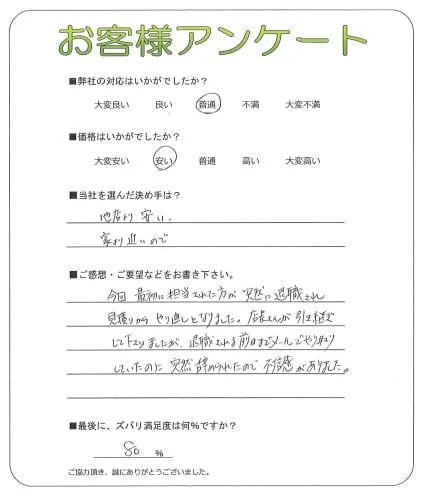 お客様アンケート
■弊社の対応はいかがでしたか？
大変良い 良い 普通 不満 大変不満
■価格はいかがでしたか？
大変安い 安い 普通 高い 大変高い
■当社を選んだ決め手は？
他店より安い.
家より近いので
■ご感想・ご要望などをお書き下さい。
今回 最初に担当された方が突然に退職され
見積りからやり直しとなりました。店長さんが引き継ぎ
して下さりましたが、退職される前日までメールでやり取り
していたのに 突然辞められたので不信感がありました。
■最後に、ズバリ満足度は何％ですか？
80 ％
ご協力頂き、誠にありがとうございました。